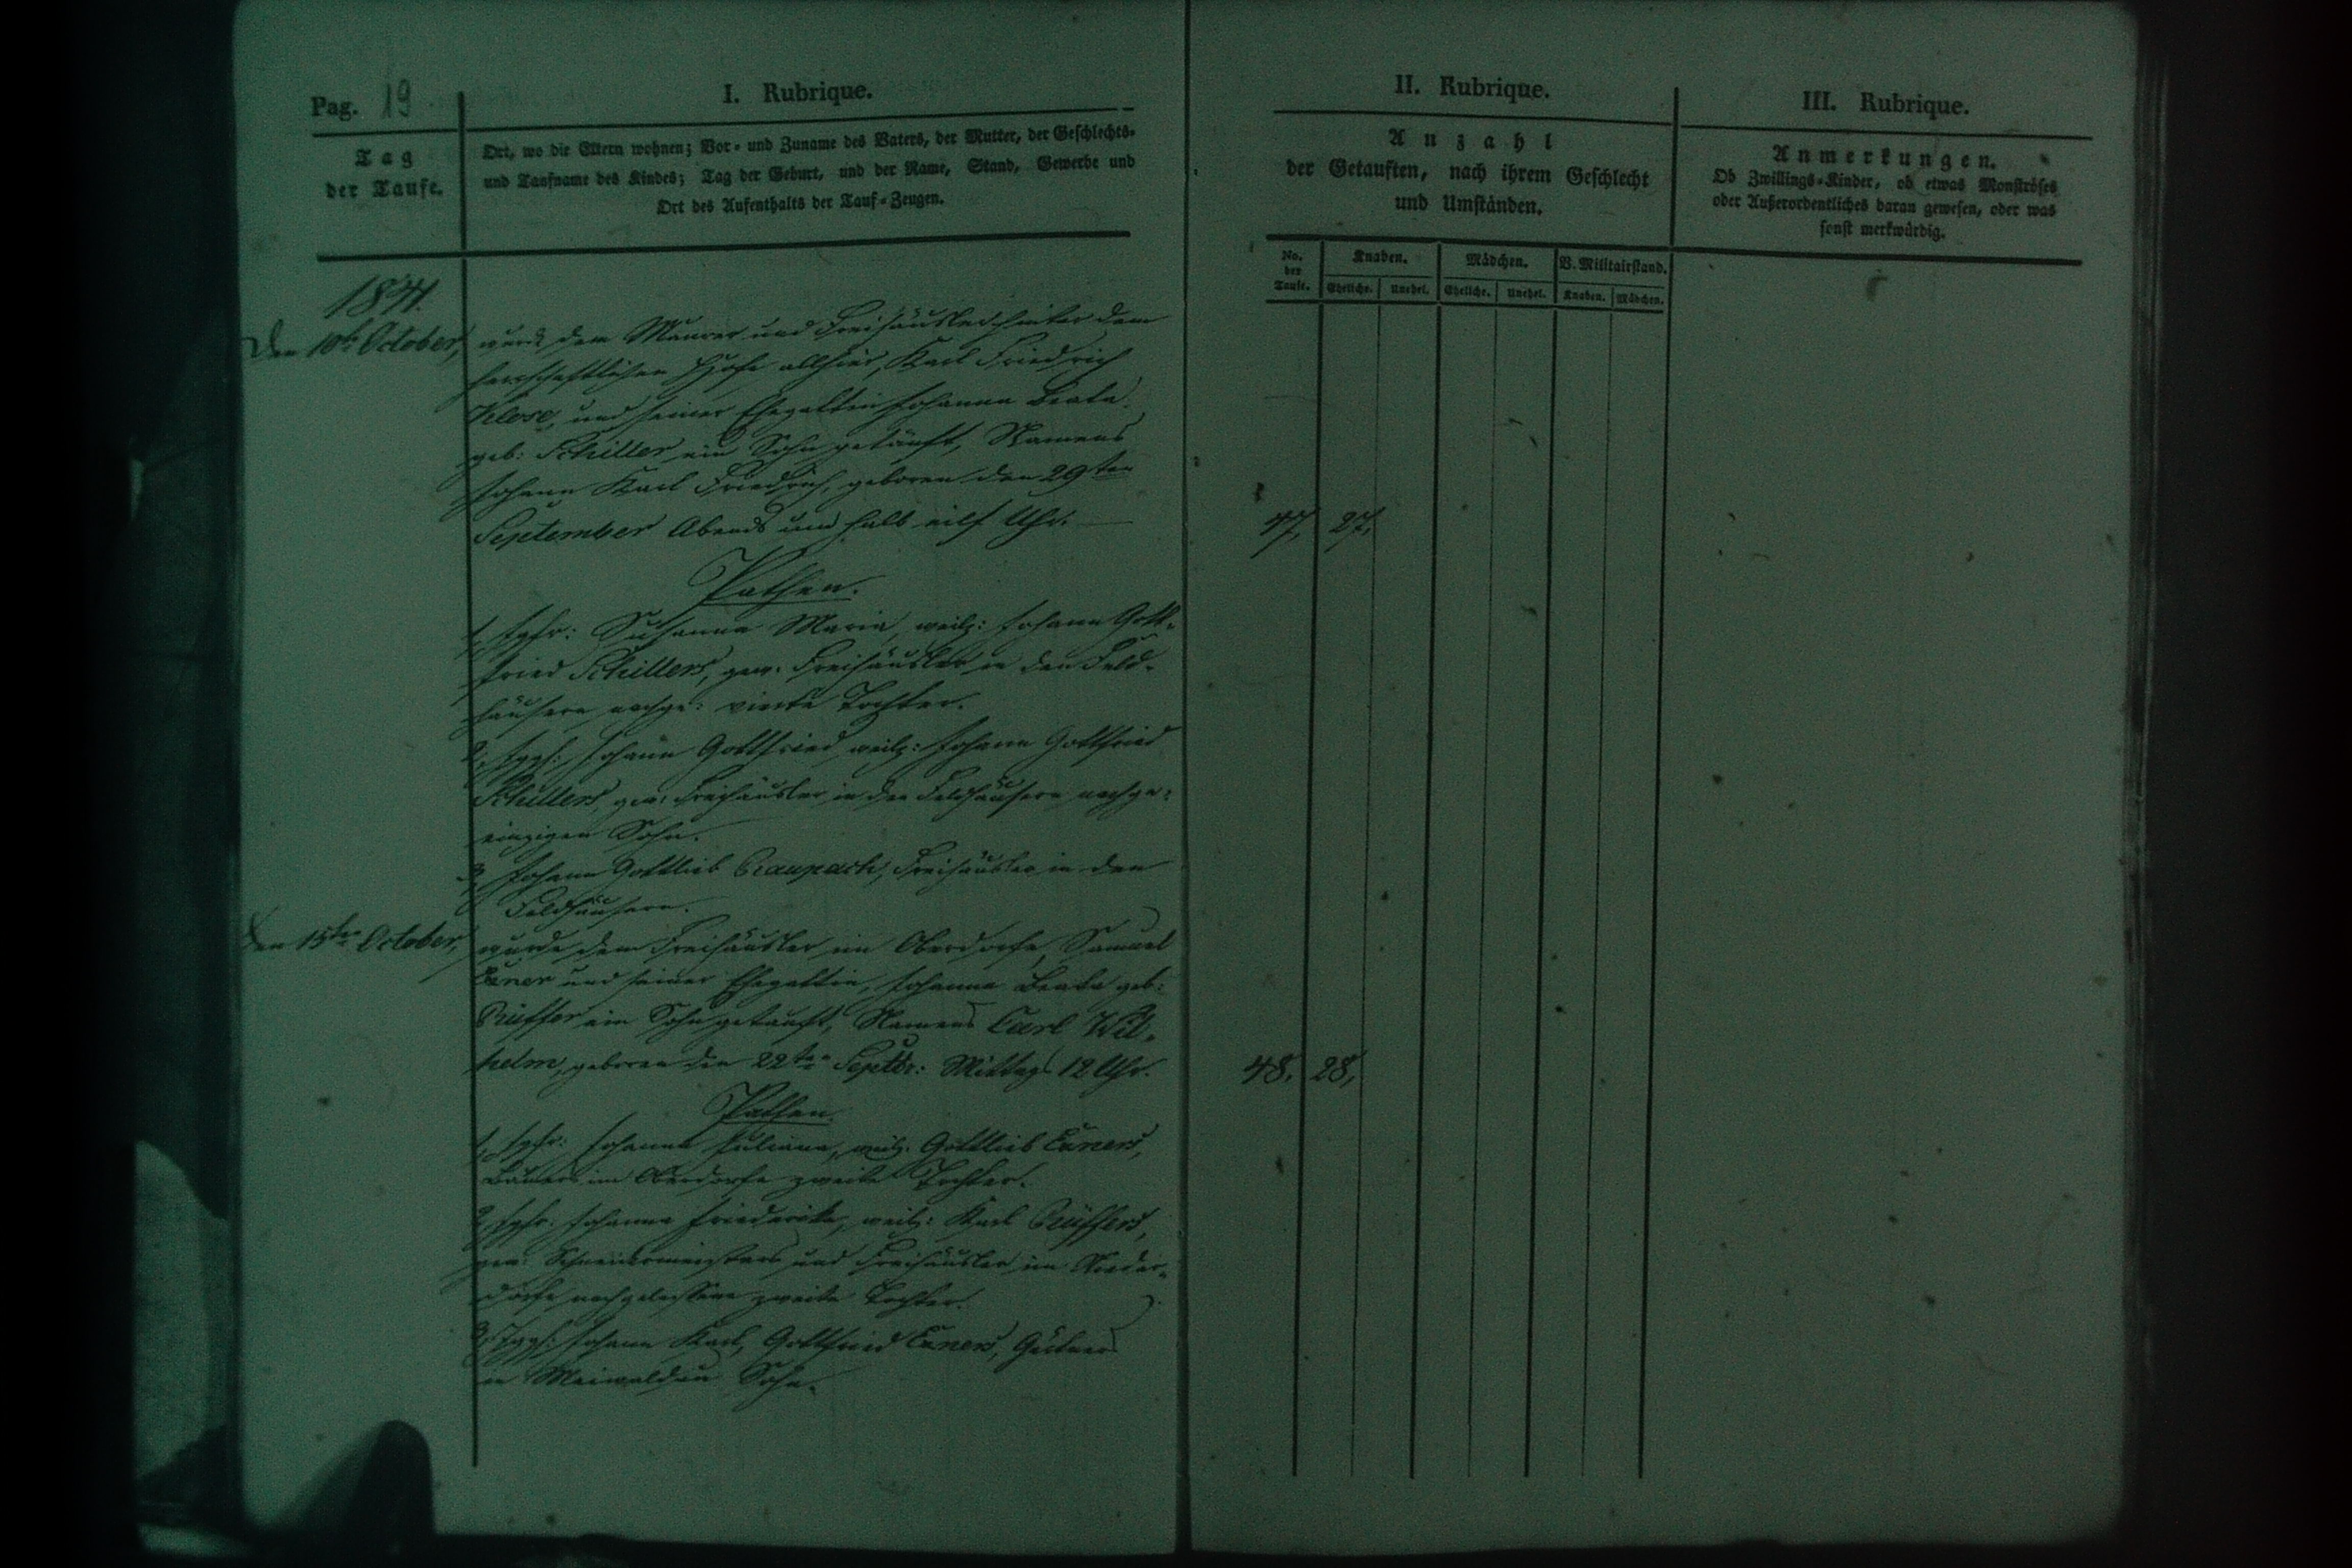 Pag. 19
I. Rubrique.
Tag
der Taufe.
Ort, wo die Eltern wohnen; Vor- und Zuname des Vaters, der Mutter, der Geschlechts-
und Taufname des Kindes; Tag der Geburt, und der Name, Stand, Gewerbe und
Ort des Aufenthalts der Tauf-Zeugen.
II. Rubrique.
Anzahl
der Getauften, nach ihrem Geschlecht
und Umständen.
III. Rubrique.
Anmerkungen.
Ob Zwillings-Kinder, ob etwas Monströses
oder Außerordentliches daran gewesen, oder was
sonst merkwürdig.
No. der Taufe.
Knaben.
Mädchen.
V. Militairstand.
Eheliche. Unehel. Eheliche. Unehel. Knaben. Mädchen.
Den 10te October, wurde dem Maurer und Freihäusler hinter dem
herrschaftlichen Hofe allhier, Karl Friedrich
Klose, und seiner Ehegattin Johanna Beata
geb: Schiller ein Sohn getauft, Namens
Johann Karl Friedrich, geboren den 29ten
September Abends um halb eilf Uhr.
47. 27.
Pathen.
1, Jgfr: Susanna Maria, weil: Johann Gott-
fried Schillers, gew. Freihäusler in den Feld-
häusern nachge: vierte Tochter.
2, Jggs: Johann Gottfried, weil: Johann Gottfried
Schillers, gew: Freihäusler in den Feldhäusern nachge:
einzigen Sohn.
3, Johann Gottlieb Raupach, Freihäusler in den
Feldhäusern.
Den 15ten October, wurde dem Freihäusler im Oberdorfe, Samuel
Exner und seiner Ehegattin, Johanna Beata geb:
Rüffer ein Sohn getauft, Namens Carl Wil-
helm, geboren den 22ten Septbr: Mittags 12 Uhr.
48. 28.
Pathen.
1, Jgfr: Johanna Juliana, weil: Gottlieb Exners,
Bauers im Oberdorfe zweite Tochter.
2, Jgfr: Johanna Friederike, weil: Karl Rüffers,
gew: Schneidermeisters und Freihäusler im Nieder-
dorfe nachgelassene zweite Tochter.
3, Jggs: Johann Karl, Gottfried Exners, Gärtners
in Maiwaldau Sohn.